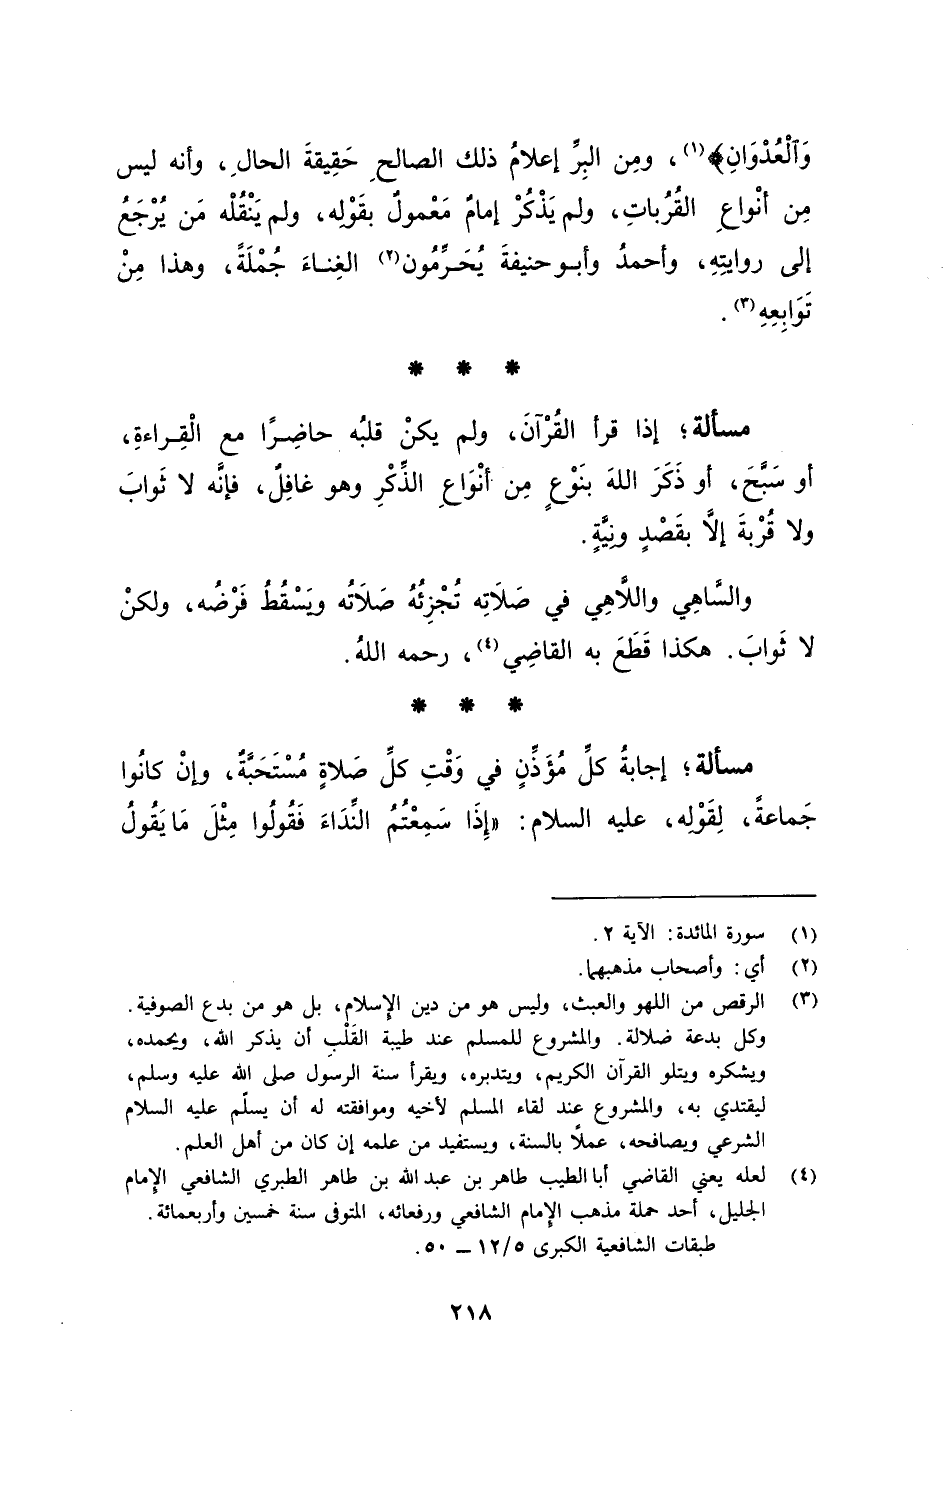 وَٱلْعُدْوَانِ﴾(١)، ومِن البِرِّ إعلامُ ذلك الصالحِ حَقِيقةَ الحالِ، وأنه ليس
مِن أنْواعِ القُرُباتِ، ولم يَذْكُرْ إمامٌ مَعْمولٌ بقَوْلِه، ولم يَنْقُلْه مَن يُرْجَعُ
إلى روايتِهِ، وأحمدُ وأبو حنيفةَ يُحَرِّمُون(٢) الغِناءَ جُمْلَةً، وهذا مِنْ
تَوَابِعِهِ(٣).
* * *
مسألة؛ إذا قرأ القُرْآنَ، ولم يكنْ قلبُه حاضِرًا مع الْقِراءةِ،
أو سَبَّحَ، أو ذَكَرَ اللهَ بنَوْعٍ مِن أنْوَاعِ الذِّكْرِ وهو غافِلٌ، فإنَّه لا ثَوابَ
ولا قُرْبةَ إلَّا بقَصْدٍ ونِيَّةٍ.
والسَّاهِي واللَّاهِي في صَلَاتِه تُجْزِئُهُ صَلَاتُه ويَسْقُطُ فَرْضُه، ولكنْ
لا ثَوابَ. هكذا قَطَعَ به القاضِي(٤)، رحمه اللهُ.
* * *
مسألة؛ إجابةُ كلِّ مُؤَذِّنٍ في وَقْتِ كلِّ صَلاةٍ مُسْتَحَبَّةٌ، وإنْ كانُوا
جَماعةً، لِقَوْلِه، عليه السلام: «إِذَا سَمِعْتُمُ النِّدَاءَ فَقُولُوا مِثْلَ مَا يَقُولُ
(١) سورة المائدة: الآية ٢.
(٢) أي: وأصحاب مذهبهما.
(٣) الرقص من اللهو والعبث، وليس هو من دين الإسلام، بل هو من بدع الصوفية.
وكل بدعة ضلالة. والمشروع للمسلم عند طيبة القَلْب أن يذكر الله، ويحمده،
ويشكره ويتلو القرآن الكريم، ويتدبره، ويقرأ سنة الرسول صلى الله عليه وسلم،
ليقتدي به، والمشروع عند لقاء المسلم لأخيه وموافقته له أن يسلّم عليه السلام
الشرعي ويصافحه، عملًا بالسنة، ويستفيد من علمه إن كان من أهل العلم.
(٤) لعله يعني القاضي أبا الطيب طاهر بن عبد الله بن طاهر الطبري الشافعي الإمام
الجليل، أحد حملة مذهب الإمام الشافعي ورفعائه، المتوفى سنة خمسين وأربعمائة.
طبقات الشافعية الكبرى ١٢/٥ – ٥٠.
٢١٨